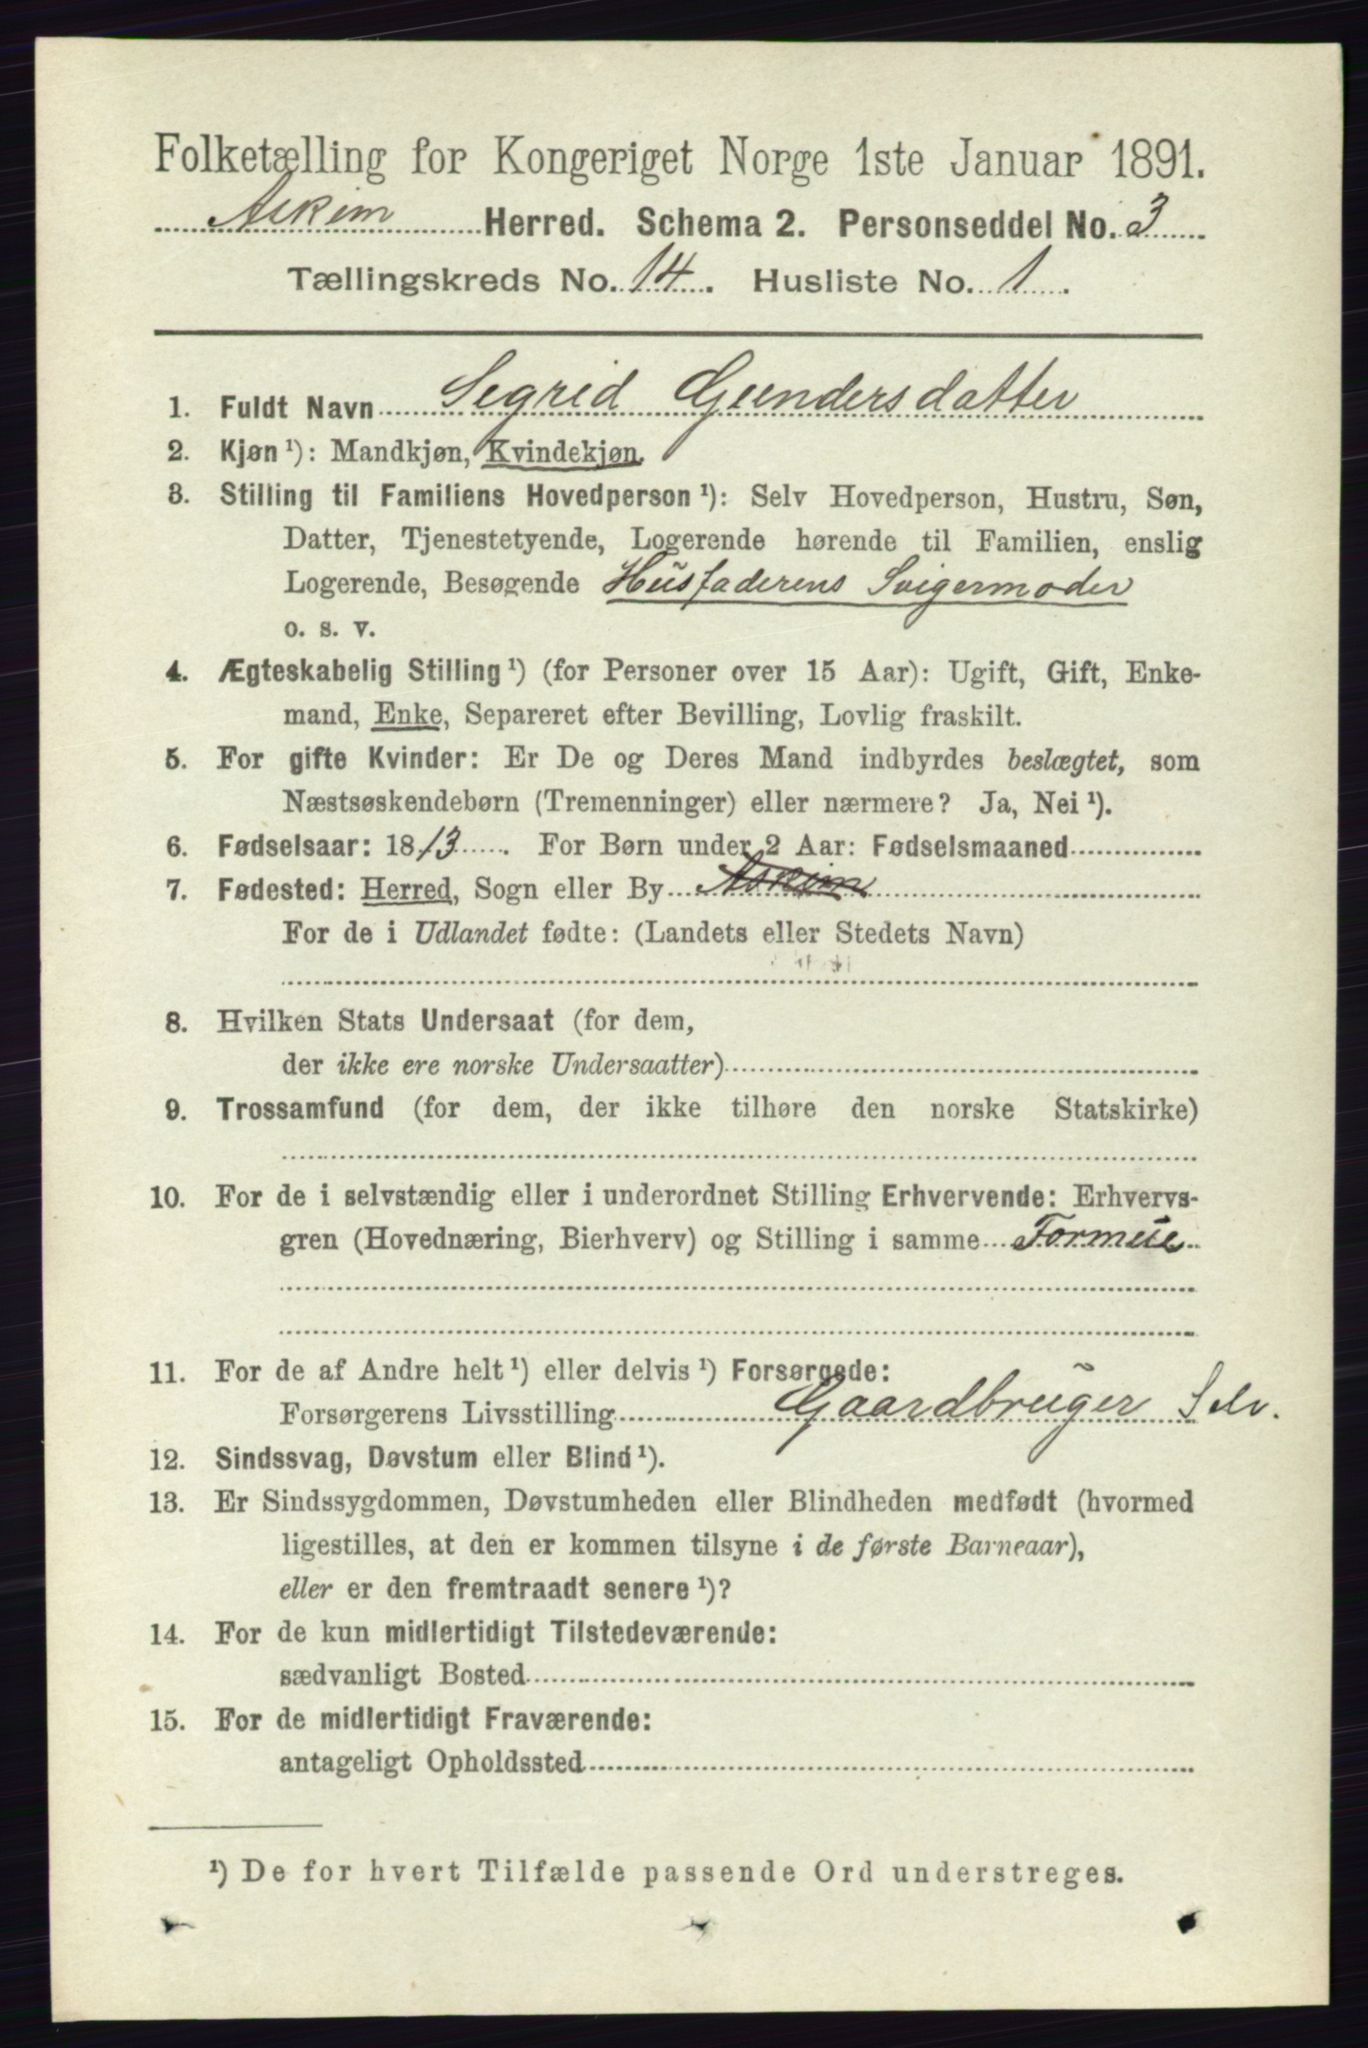 Folketælling for Kongeriget Norge 1ste Januar 1891.
Askim Herred. Schema 2. Personseddel No. 3
Tællingskreds No. 14. Husliste No. 1.
1. Fuldt Navn Segrid Gundersdatter
2. Kjøn ¹): Mandkjøn, Kvindekjøn.
3. Stilling til Familiens Hovedperson ¹): Selv Hovedperson, Hustru, Søn,
Datter, Tjenestetyende, Logerende hørende til Familien, enslig
Logerende, Besøgende Husfaderens Svigermoder
o. s. v.
4. Ægteskabelig Stilling ¹) (for Personer over 15 Aar): Ugift, Gift, Enke-
mand, Enke, Separeret efter Bevilling, Lovlig fraskilt.
5. For gifte Kvinder: Er De og Deres Mand indbyrdes beslægtet, som
Næstsøskendebørn (Tremenninger) eller nærmere? Ja, Nei ¹).
6. Fødselsaar: 1813. For Børn under 2 Aar: Fødselsmaaned
7. Fødested: Herred, Sogn eller By Askim
For de i Udlandet fødte: (Landets eller Stedets Navn)
8. Hvilken Stats Undersaat (for dem,
der ikke ere norske Undersaatter)
9. Trossamfund (for dem, der ikke tilhøre den norske Statskirke)
10. For de i selvstændig eller i underordnet Stilling Erhvervende: Erhvervs-
gren (Hovednæring, Bierhverv) og Stilling i samme Formue
11. For de af Andre helt ¹) eller delvis ¹) Forsørgede:
Forsørgerens Livsstilling Gaardbruger Selv.
12. Sindssvag, Døvstum eller Blind ¹).
13. Er Sindssygdommen, Døvstumheden eller Blindheden medfødt (hvormed
ligestilles, at den er kommen tilsyne i de første Barneaar),
eller er den fremtraadt senere ¹)?
14. For de kun midlertidigt Tilstedeværende:
sædvanligt Bosted
15. For de midlertidigt Fraværende:
antageligt Opholdssted
¹) De for hvert Tilfælde passende Ord understreges.